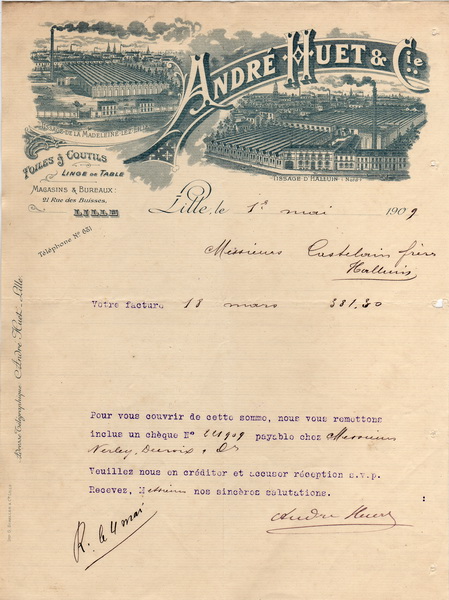 ANDRÉ HUET & Cie
DE LA MADELEINE-LEZ-LILLE
TISSAGE D'HALLUIN (Nord)
TOILES & COUTILS
LINGE DE TABLE
MAGASINS & BUREAUX:
21 Rue des Buisses.
LILLE
Téléphone No 631
Lille, le 1r mai 1909
Messieurs Castelain frères
Halluin
Votre facture 18 mars 381,30
Adresse Télégraphique: André Huet - Lille
Pour vous couvrir de cette somme, nous vous remettons
inclus un chèque No payable chez Messieurs
Verley, Decroix &
Veuillez nous en créditer et accuser réception s.v.p.
Recevez, Messieurs nos sincères salutations.
André Huet
R. le 4 mai